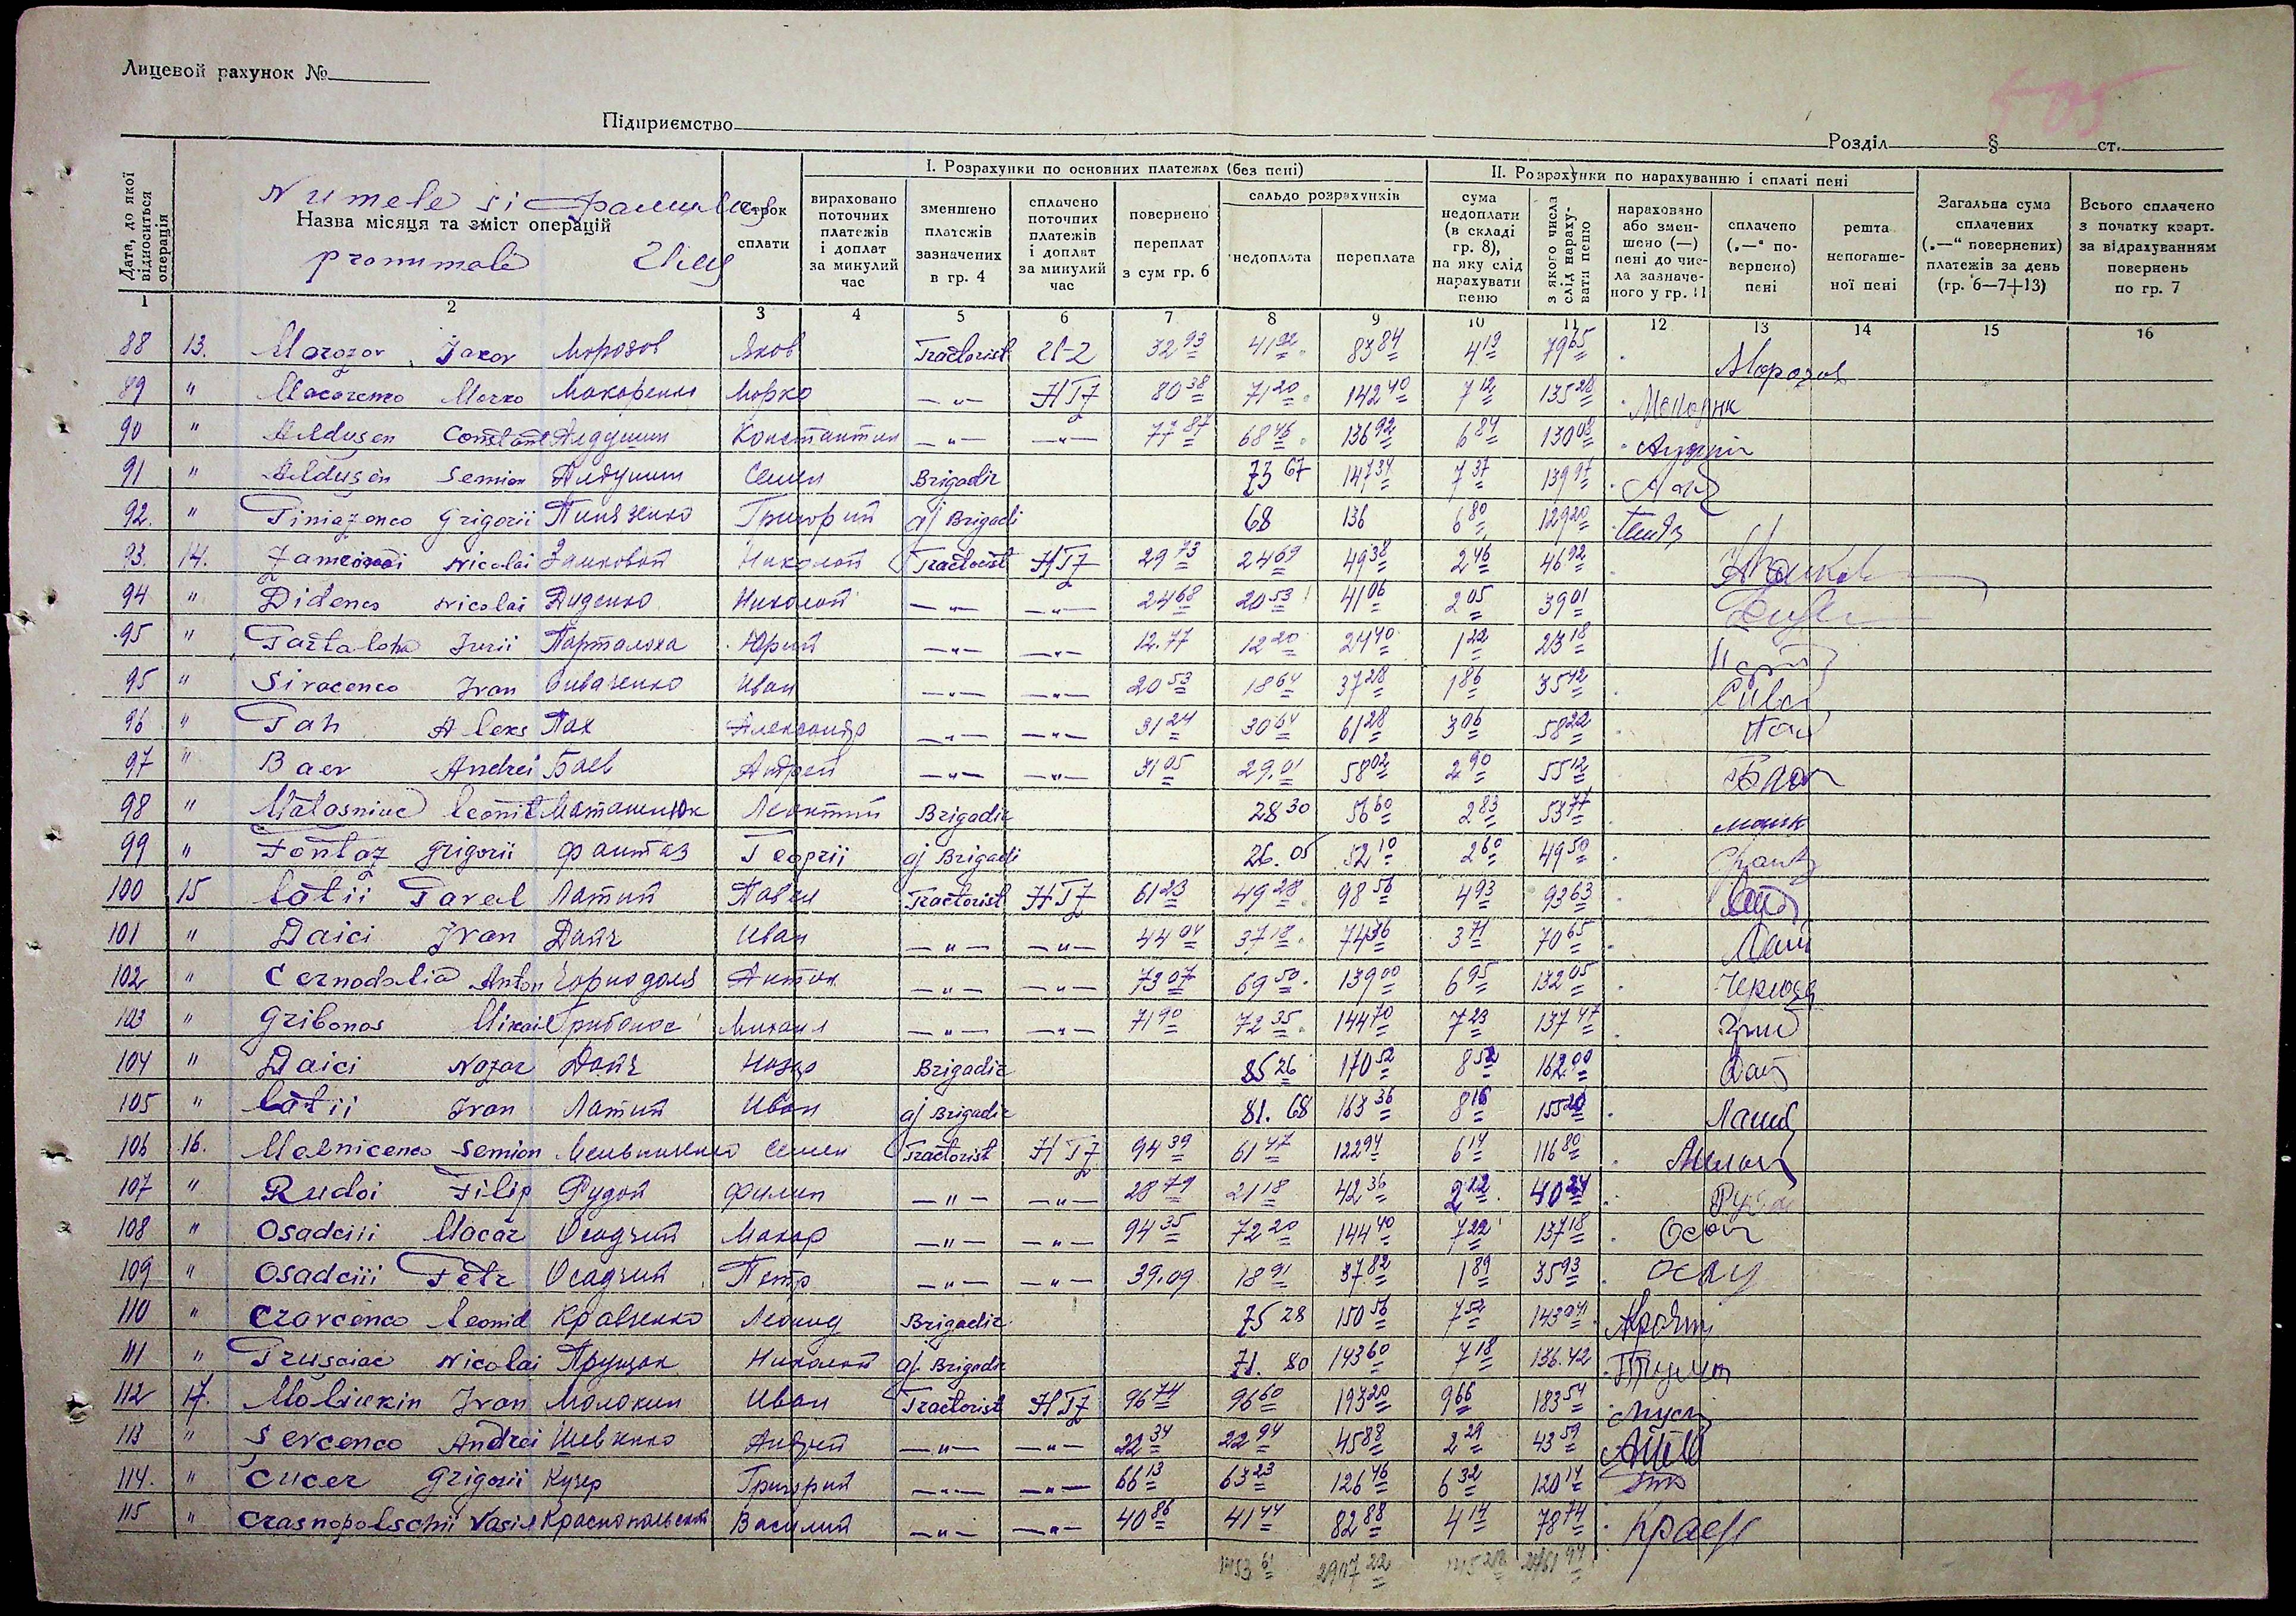 Лицевой рахунок №
505
Підприємство
Розділ § ст.
Дата, до якої відноситься операція
Numele si Фамилия
Назва місяця та зміст операцій
pronumele Имя
Строк сплати
I. Розрахунки по основних платежах (без пені)
вираховано поточних платежів і доплат за минулий час
зменшено платежів зазначених в гр. 4
сплачено поточних платежів і доплат за минулий час
повернено переплат з сум гр. 6
сальдо розрахунків
недоплата
переплата
II. Розрахунки по нарахуванню і сплаті пені
сума недоплати (в складі гр. 8), на яку слід нарахувати пеню
з якого числа слід нарахувати пеню
нараховано або зменшено (—) пені до числа зазначеного у гр. 11
сплачено („—“ повернено) пені
решта непогашеної пені
Загальна сума сплачених („—“ повернених) платежів за день (гр. 6—7+13)
Всього сплачено з початку кварт. за відрахуванням повернень по гр. 7
1 2 3 4 5 6 7 8 9 10 11 12 13 14 15 16
88 13. Morozov Jacov Морозов Яков Tractorist 32 93 41 92 83 84 4 19 79 65 Морозов
89 " Macarenco Marco Макаренко Марко —"— НТZ 80 38 71 20 142 40 7 12 135 28
90 " Aldusen Constant Алдушин Константин —"— —"— 77 87 68 46 136 92 6 84 130 08
91 " Aldusen Semion Алдушин Семен Brigadir 73 67 147 34 7 37 139 97
92. " Piniazenco Grigorii Пинязенко Григорий aj Brigadi 68 136 6 80 129 20
93. 14. Zamcovoi Nicolai Замковой Николай Tractorist НТZ 29 73 24 69 49 38 2 46 46 92
94 " Didenco Nicolai Диденко Николай —"— —"— 24 68 20 53 41 06 2 05 39 01
95 " Partaloha Iurii Парталоха Юрий —"— —"— 12.77 12 20 24 40 1 22 23 18
95 " Sivacenco Ivan Сиваченко Иван —"— —"— 20 53 18 64 37 28 1 86 35 42
96 " Pah Aleks Пах Александр —"— —"— 31 24 30 64 61 28 3 06 58 22
97 " Baev Andrei Баев Андрей —"— —"— 31 05 29.01 58 02 2 90 55 12
98 " Matasniuc Leontii Маташнюк Леонтий Brigadir 28 30 56 60 2 83 53 77
99 " Fontaz Grigorii Фантаз Георгii aj Brigadi 26.05 52 10 2 60 49 50
100 15 Latii Pavel Латий Павел Tractorist НТZ 61 23 49 28 98 56 4 93 93 63
101 " Daici Ivan Дайч Иван —"— —"— 44 04 37 18 74 36 3 71 70 65
102 " Cernodolia Anton Чорнодоля Антон —"— —"— 73 07 69 50 139 00 6 95 132 05
103 " Gribonos Mihail Грибонос Михаил —"— —"— 71 90 72 35 144 70 7 23 137 47
104 " Daici Nazar Дайч Назар Brigadir 85 26 170 52 8 52 162.00
105 " Latii Ivan Латий Иван aj Brigadir 81.68 163 36 8 16 155 20
106 16. Melnicenco Semion Мельниченко Семен Tractorist НТZ 94 39 61 47 122 94 6 14 116 80
107 " Rudoi Filip Рудой Филип —"— —"— 28 79 21 18 42 36 2 12 40 24
108 " Osadcii Macar Осадчий Макар —"— —"— 94 35 72 20 144 40 7 22 137 18
109 " Osadciii Petr Осадчий Петр —"— —"— 39.09 18 91 37 82 1 89 35 93
110 " Cravcenco Leonid Кравченко Леонид Brigadir 75 28 150 56 7 52 143 04
111 " Prusciac Nicolai Прущак Николай aj. Brigadir 71.80 143 60 7 18 136.42
112 17. Molickin Ivan Молокин Иван Tractorist НТZ 96 74 96 60 193 20 9 66 183 54
113 " Sevcenco Andrei Шевченко Андрей —"— —"— 22 34 22 94 45 88 2 29 43 59
114. " Cucer Grigorii Кучер Григорий —"— —"— 66 13 63 23 126 46 6 32 120 14
115 " Crasnopolschii Vasil Краснопольский Василий —"— —"— 40 86 41 44 82 88 4 14 78 74